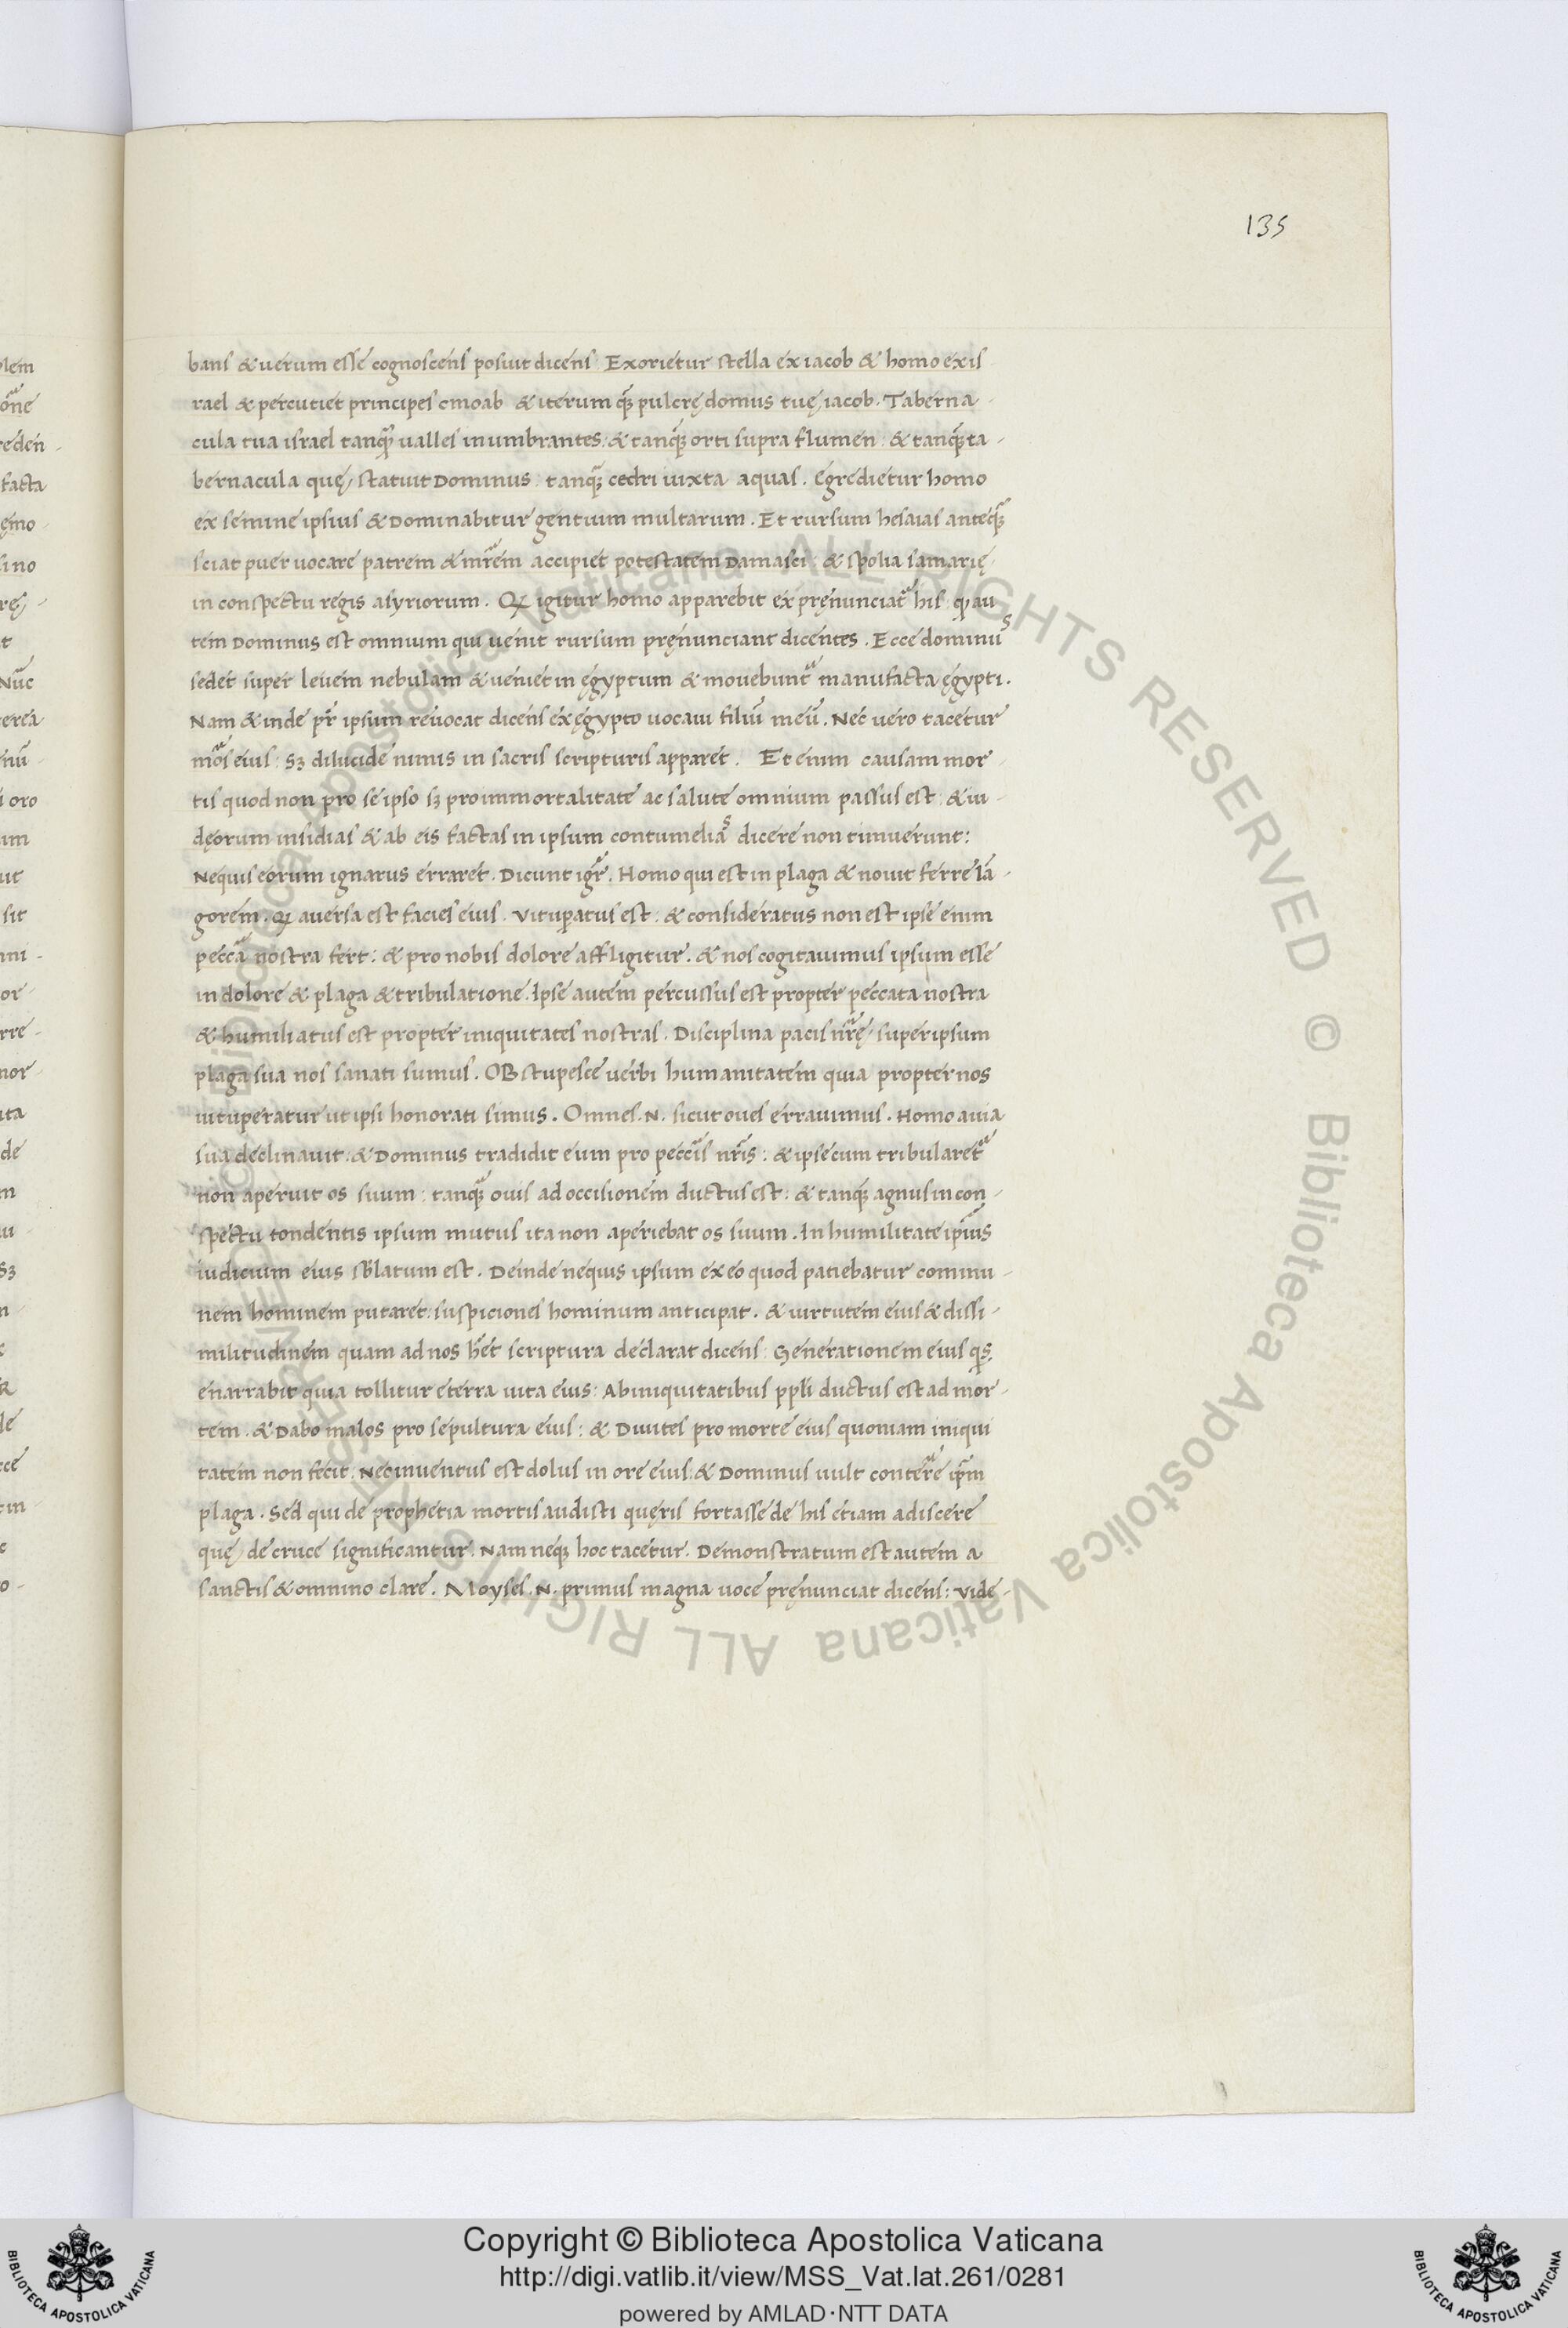 135
bans & uerum esse cognoscens posuit dicens: Exorietur stella ex iacob & homo ex is
rael & percutiet principes moab & iterum quȩ pulcrȩ domus tuȩ iacob. Taberna-
cula tua israel tanq̃ ualles inumbrantes: & tanq̃ orti supra flumen: & tanq̃ ta-
bernacula quȩ statuit Dominus: tanq̃ cedri iuxta aquas. Egredietur homo
ex semine ipsius & Dominabitur gentium multarum. Et rursum hesaias anteq̃
sciat puer uocare patrem & mr̃em accipiet potestatem Damasci: & spolia samariȩ
in conspectu regis asyriorum. Q igitur homo apparebit ex prȩnunciat̃ his: q au
tem Dominus est omnium qui uenit rursum prȩnunciant dicentes. Ecce dominus
sedet super leuem nebulam & ueniet in ȩgyptum & mouebunt̃ manufacta ȩgypti.
Nam & inde pr̃ ipsum reuocat dicens ex ȩgypto uocaui filiũ meũ. Nec uero tacetur
mõs eius: sʒ dilucide nimis in sacris scripturis apparet. Et enim causam mor
tis quod non pro se ipso sʒ pro immortalitate ac salute omnium passus est: & iu-
dȩorum insidias & ab eis factas in ipsum contumelias dicere non timuerunt:
Nequis eorum ignarus erraret. Dicunt igr̃. Homo qui est in plaga & nouit ferre lã-
gorem. Q auersa est facies eius. Vitupatus est: & consideratus non est ipse enim
peccã nostra fert: & pro nobis dolore affligitur. & nos cogitauimus ipsum esse
in dolore & plaga & tribulatione. Ipse autem percussus est propter peccata nostra
& humiliatus est propter iniquitates nostras. Disciplina pacis nr̃ȩ super ipsum
plaga sua nos sanati sumus. Obstupesce uerbi humanitatem quia propter nos
uituperatur ut ipsi honorati simus. Omnes .N. sicut oues errauimus. Homo a uia
sua declinauit: & Dominus tradidit eum pro peccis̃ nr̃is: & ipse cum tribularet̃
non aperuit os suum: tanq̃ ouis ad occisionem ductus est: & tanq̃ agnus in con-
spectu tondentis ipsum mutus ita non aperiebat os suum. In humilitate ip̃ius
iudicium eius sb̃latum est. Deinde nequis ipsum ex eo quod patiebatur commu-
nem hominem putaret: suspiciones hominum anticipat. & uirtutem eius & dissi-
militudinem quam ad nos h̃et scriptura declarat dicens: Generationem eius qs
enarrabit quia tollitur e terra uita eius: Ab iniquitatibus ppl̃i ductus est ad mor-
tem. & Dabo malos pro sepultura eius: & Diuites pro morte eius quoniam iniqui
tatem non fecit. Nec inuentus est dolus in ore eius: & Dominus uult conter̃e ip̃m
plaga. Sed qui de prophetia mortis audisti quȩris fortasse de his etiam adiscere
quȩ de cruce significantur. Nam neqʒ hoc tacetur. Demonstratum est autem a
sanctis & omnino clare. Moyses .N. primus magna uoce prȩnunciat dicens: Vide-
Copyright © Biblioteca Apostolica Vaticana
http://digi.vatlib.it/view/MSS_Vat.lat.261/0281
powered by AMLAD·NTT DATA
BIBLIOTECA APOSTOLICA VATICANA
BIBLIOTECA APOSTOLICA VATICANA